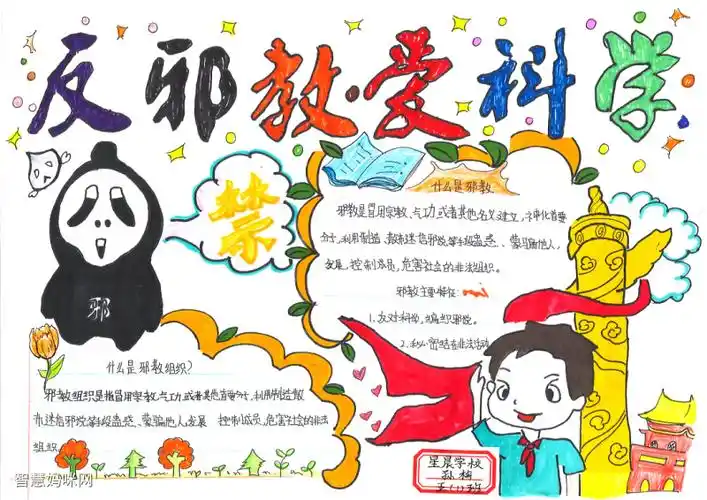 反邪教·爱科学
禁
什么是邪教
邪教是冒用宗教、气功或者其他名义建立,神化首要
分子,利用制造、散布迷信邪说等手段蛊惑、蒙骗他人,
发展、控制成员,危害社会的非法组织。
邪教主要特征:
1.反对科学,编织邪说。
2.秘密结社非法活动
邪
什么是邪教组织?
邪教组织是指冒用宗教、气功或者其他首要分子,利用制造散
布迷信邪说等手段蛊惑、蒙骗他人,发展 控制成员,危害社会的非法
组织。
星晨学校
孙
班
智慧妈咪网